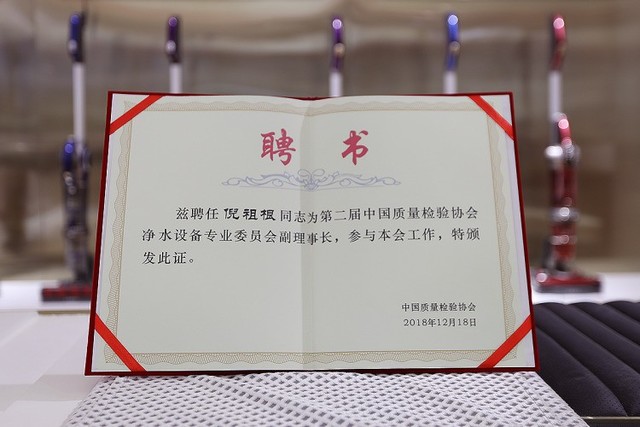 聘书
兹聘任倪祖根同志为第二届中国质量检验协会
净水设备专业委员会副理事长，参与本会工作，特颁
发此证。
中国质量检验协会
2018年12月18日